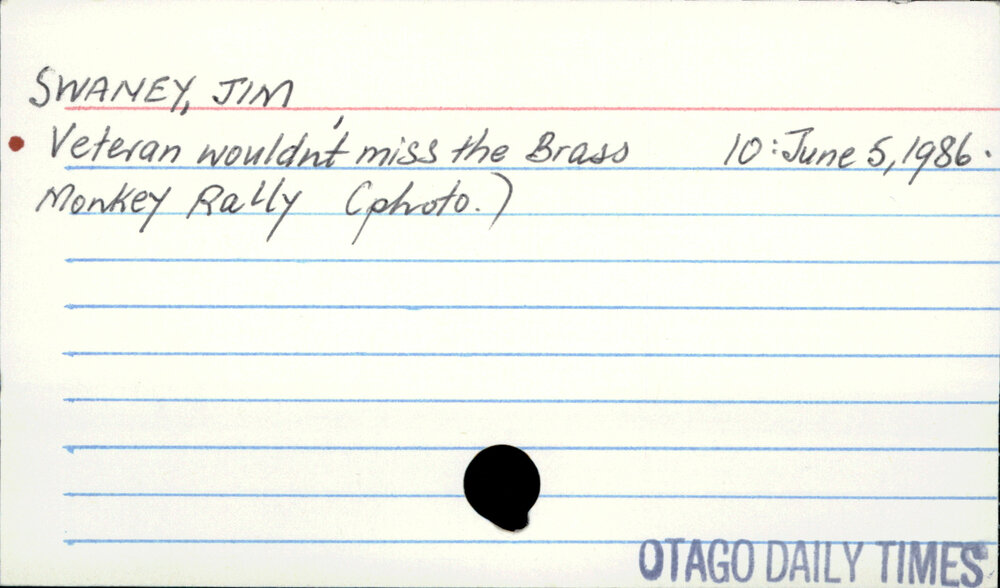 SWANEY, JIM
Veteran wouldn't miss the Brass 10: June 5, 1986.
Monkey Rally (photo.)
OTAGO DAILY TIMES